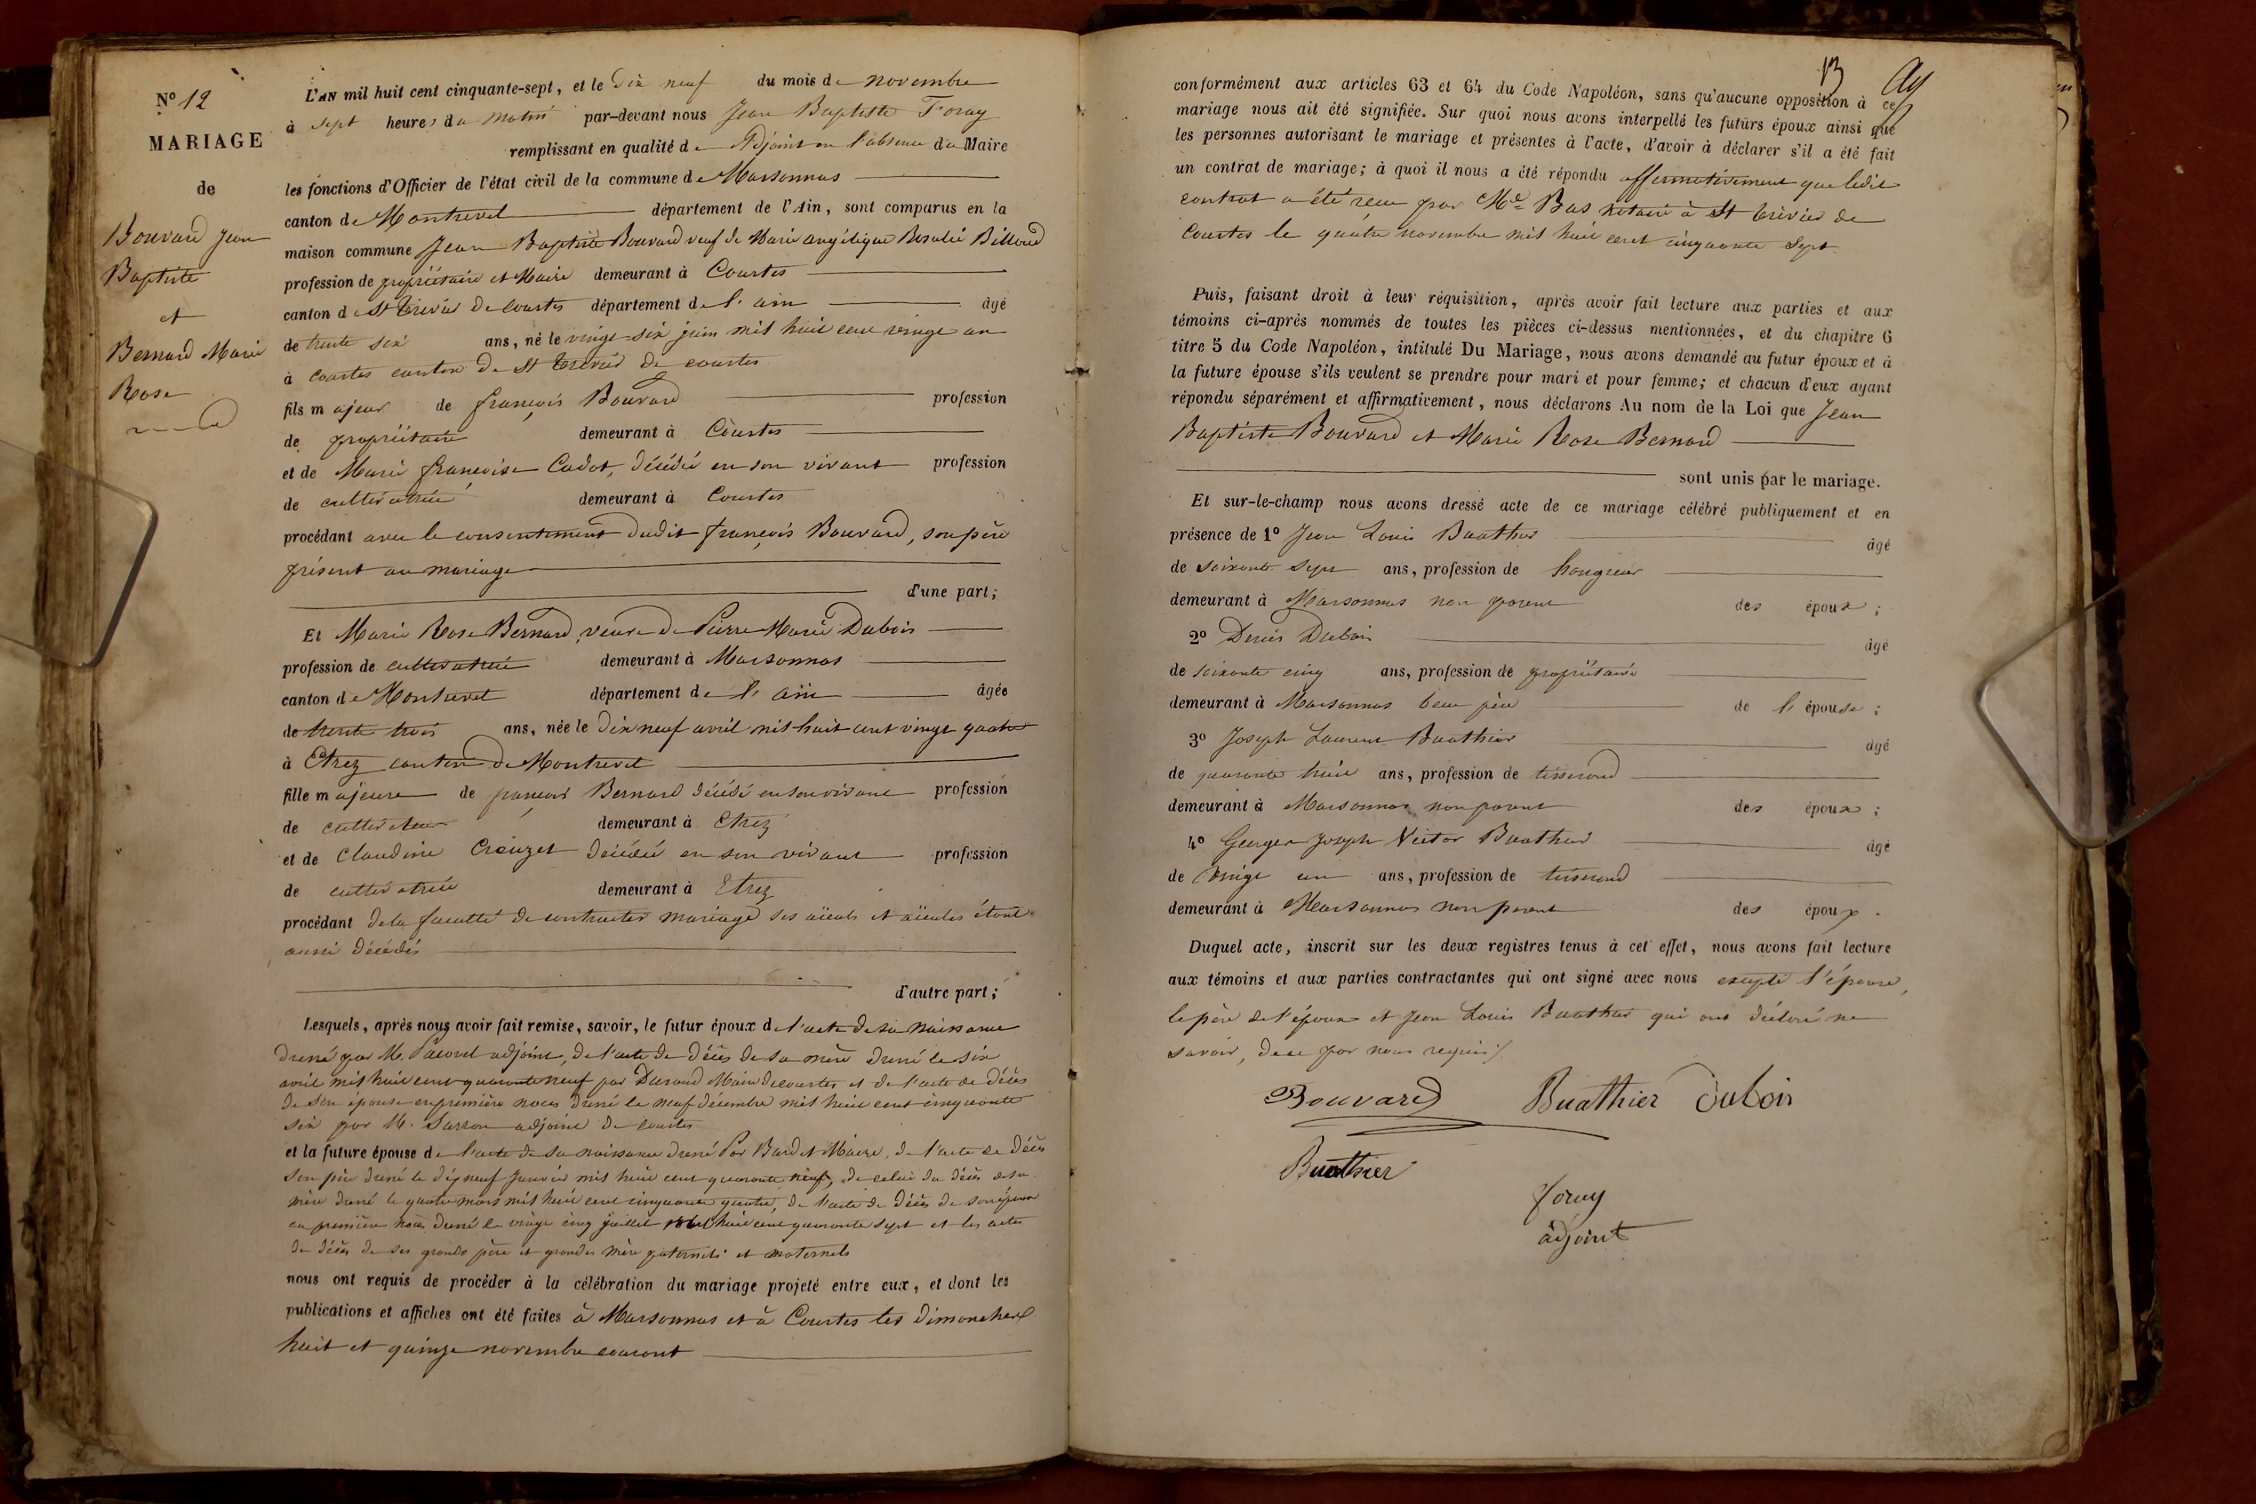 N° 12
MARIAGE
de
Bouvard Jean
Baptiste
et
Bernard Marie
Rose
L'AN mil huit cent cinquante-sept, et le Dix neuf du mois de novembre
à sept heures du matin par-devant nous Jean Baptiste Foray
remplissant en qualité de Adjoint en l'absence du Maire
les fonctions d'Officier de l'état civil de la commune de Marsonnas
canton de Montrevel département de l'Ain, sont comparus en la
maison commune Jean Baptiste Bouvard veuf de Marie angélique Rosalie Billoud
profession de propriétaire et Maire demeurant à Courtes
canton de St Trivier de Courtes département de l'ain âgé
de trente six ans, né le vingt six juin mil huit cent vingt un
à Courtes canton de St Trivier de courtes
fils majeur de françois Bouvard profession
de propriétaire demeurant à Courtes
et de Marie françoise Cadot, décédée en son vivant profession
de cultivatrice demeurant à Courtes
procédant avec le consentement dudit françois Bouvard, son père
présent au mariage
d'une part;
Et Marie Rose Bernard, veuve de Pierre Marie Dubois
profession de cultivatrice demeurant à Marsonnas
canton de Montrevel département de l'ain âgée
de trente trois ans, née le Dix neuf avril mil huit cent vingt quatre
à Etrez canton de Montrevel
fille majeure de françois Bernard décédé en son vivant profession
de cultivateur demeurant à Etrez
et de Claudine Creuzet décédée en son vivant profession
de cultivatrice demeurant à Etrez
procédant de la faculté de contracter mariage ses aïeuls et aïeules étant
aussi décédés
d'autre part;
Lesquels, après nous avoir fait remise, savoir, le futur époux de l'acte de sa naissance
dressé par M. adjoint, de l'acte de décès de sa mère dressé le six
avril mil huit cent quarante neuf par Durand Maire de courtes et de l'acte de décès
de son épouse en première noces dressé le neuf décembre mil huit cent cinquante
six par M. adjoint de courtes
et la future épouse de l'acte de sa naissance dressé Par Bardet Maire, de l'acte de décès
son père dressé le dix neuf janvier mil huit cent quarante neuf, de celui du décès de sa
mère dressé le quatre mars mil huit cent cinquante quatre, de l'acte de décès de son époux
en première noces dressé le vingt cinq juillet mil huit cent quarante sept et les actes
de décès de ses grands père et grandes mère paternels et maternels
nous ont requis de procéder à la célébration du mariage projeté entre eux, et dont les
publications et affiches ont été faites à Marsonnas et à Courtes les dimanches
huit et quinze novembre courant
13
conformément aux articles 63 et 64 du Code Napoléon, sans qu'aucune opposition à ce
mariage nous ait été signifiée. Sur quoi nous avons interpellé les futurs époux ainsi que
les personnes autorisant le mariage et présentes à l'acte, d'avoir à déclarer s'il a été fait
un contrat de mariage; à quoi il nous a été répondu affirmativement que ledit
contrat a été reçu par Me Bas notaire à St Trivier de
Courtes le quatre novembre mil huit cent cinquante sept
Puis, faisant droit à leur réquisition, après avoir fait lecture aux parties et aux
témoins ci-après nommés de toutes les pièces ci-dessus mentionnées, et du chapitre 6
titre 5 du Code Napoléon, intitulé Du Mariage, nous avons demandé au futur époux et à
la future épouse s'ils veulent se prendre pour mari et pour femme; et chacun d'eux ayant
répondu séparément et affirmativement, nous déclarons Au nom de la Loi que Jean
Baptiste Bouvard et Marie Rose Bernard
sont unis par le mariage.
Et sur-le-champ nous avons dressé acte de ce mariage célébré publiquement et en
présence de 1° Jean Louis Buathier âgé
de soixante sept ans, profession de hongreur
demeurant à Marsonnas non parent des époux;
2° Denis Dubois âgé
de soixante cinq ans, profession de propriétaire
demeurant à Marsonnas beau père de l'épouse;
3° Joseph Laurent Buathier âgé
de quarante trois ans, profession de tisserand
demeurant à Marsonnas non parent des époux;
4° Georges Joseph Victor Buathier âgé
de vingt un ans, profession de tisserand
demeurant à Marsonnas non parent des époux.
Duquel acte, inscrit sur les deux registres tenus à cet effet, nous avons fait lecture
aux témoins et aux parties contractantes qui ont signé avec nous excepté l'épouse,
le père de l'époux et Jean Louis Buathier qui ont déclaré ne
savoir, de ce par nous requis
Bouvard Buathier Dubois
Buathier
Foray
adjoint